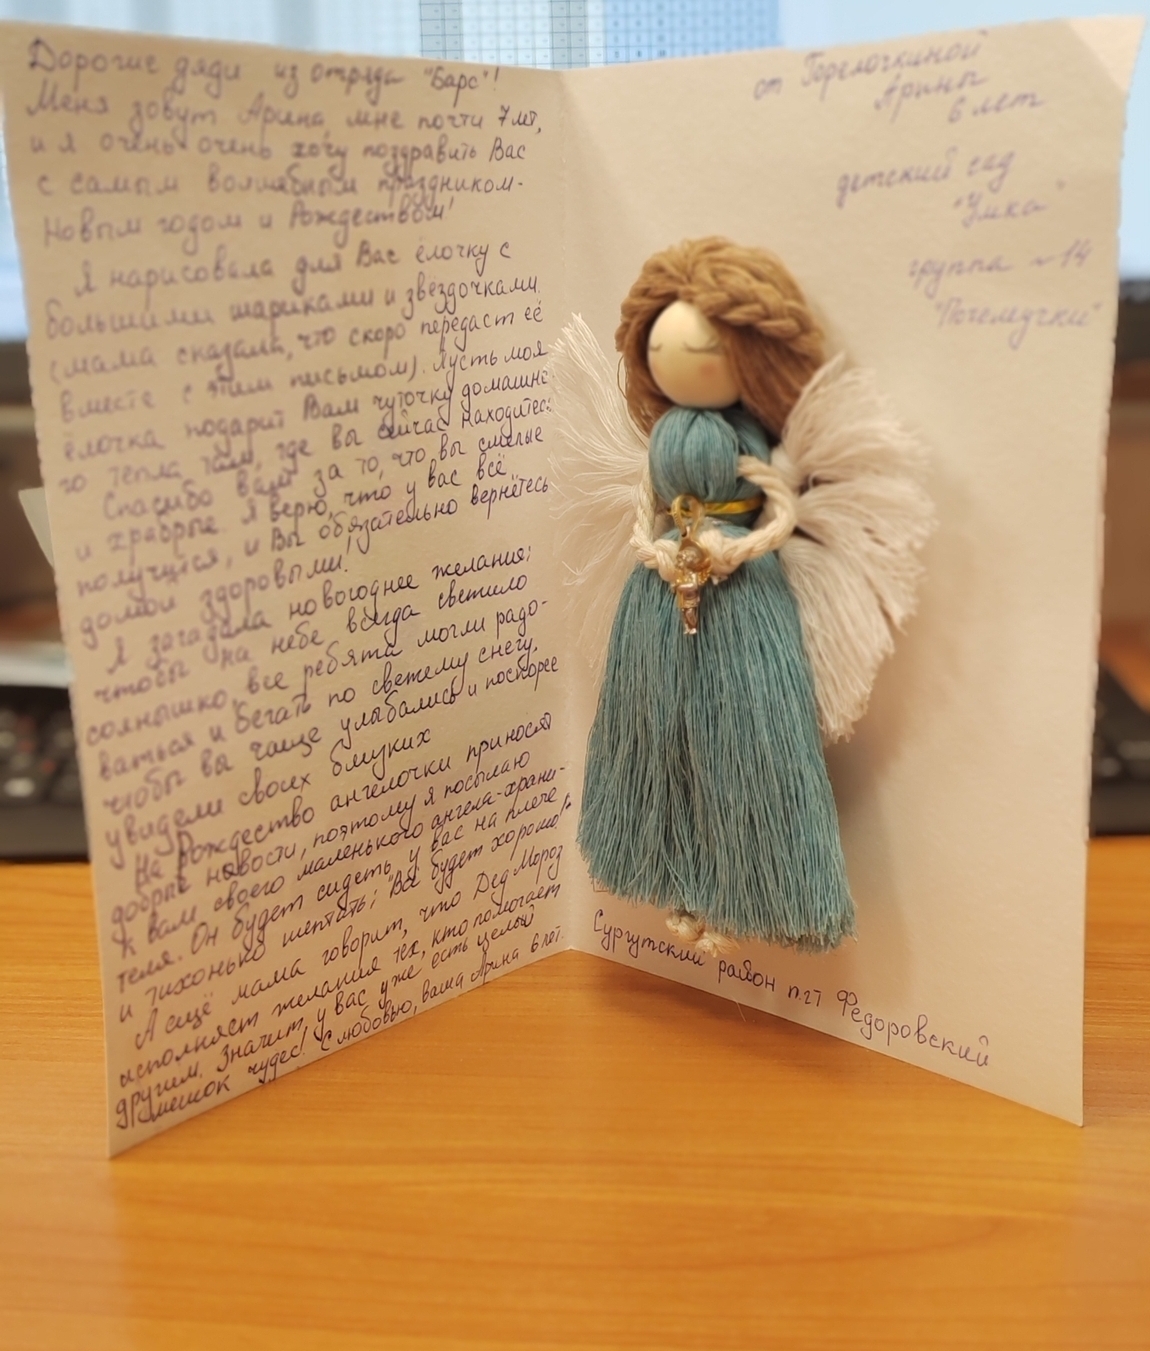 Дорогие дяди из отряда "Барс"!
Меня зовут Арина, мне почти 7 лет,
и я очень очень хочу поздравить Вас
с самым волшебным праздником-
Новым годом и Рождеством!
Я нарисовала для Вас ёлочку с
большими шариками и звёздочками
(мама сказала, что скоро передаст её
вместе с этим письмом). Пусть моя
ёлочка подарит Вам чуточку домашне-
го тепла там, где вы сейчас находитесь.
Спасибо вам за то, что вы смелые
и храбрые. Я верю, что у вас всё
получится, и Вы обязательно вернётесь
домой здоровыми!
Я загадала новогоднее желание:
чтобы на небе всегда светило
солнышко, все ребята могли радо-
ваться и бегать по свежему снегу,
чтобы вы чаще улыбались и поскорее
увидели своих близких
На Рождество ангелочки приносят
добрые новости, поэтому я посылаю
к вам своего маленького ангела-храни-
теля. Он будет сидеть у вас на плече
и тихонько шептать: "Всё будет хорошо!"
А ещё мама говорит, что Дед Мороз
исполняет желания тех, кто помогает
другим. Значит, у вас уже есть целый
мешок чудес! С любовью, ваша Арина 6 лет.
от Горелочкиной
Арины
6 лет
детский сад
"Умка"
группа №14
"Почемучки"
Сургутский район п.г.т Федоровский